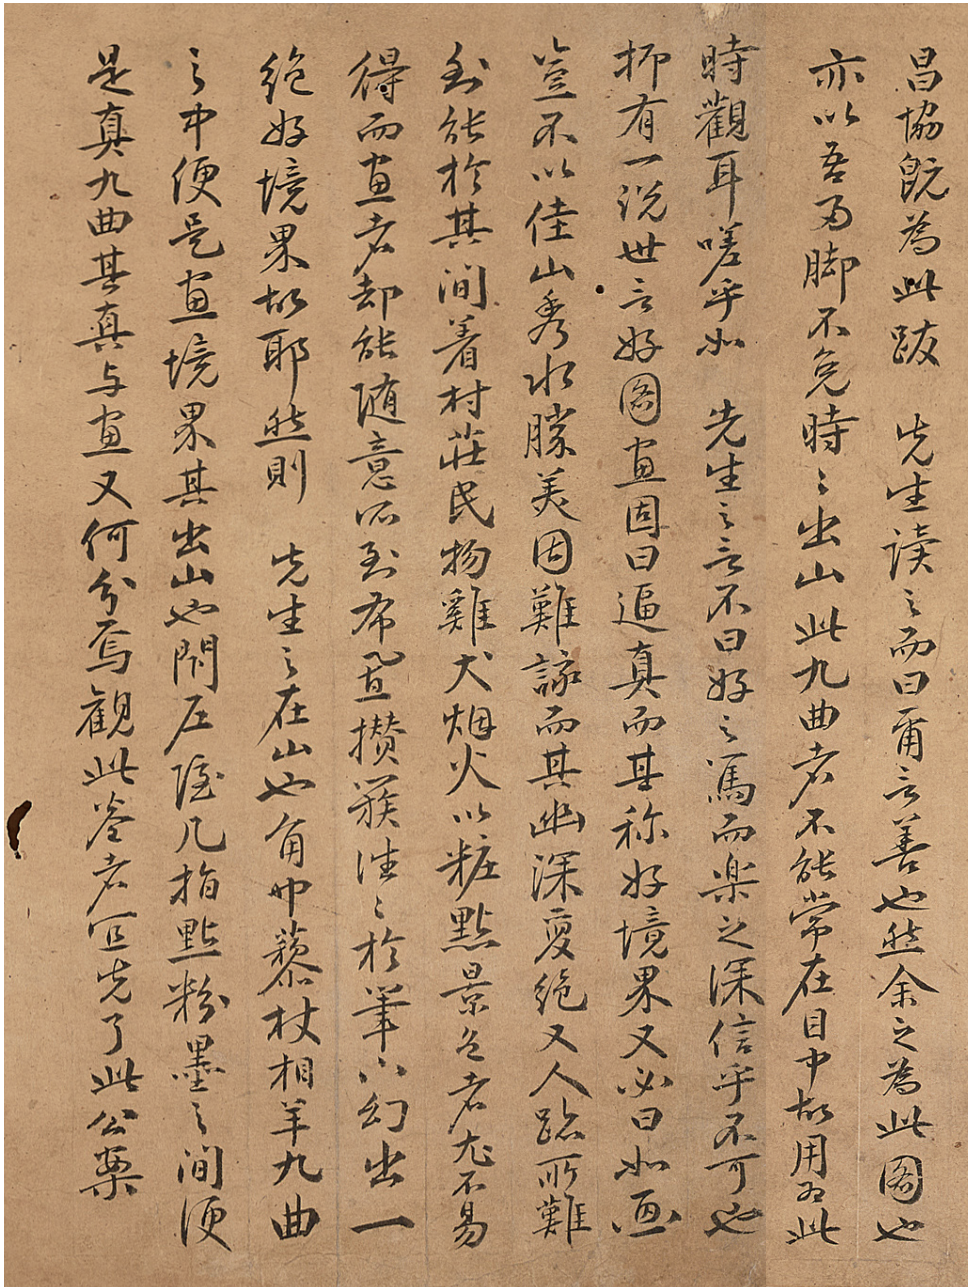 昌協旣為此跋 先生读之而曰爾言善也然余之為此圖也
亦以吾兩脚不免時〻出山此九曲者不能常在目中故用為此
時觀耳嗟乎如 先生之言不曰好之篤而楽之深信乎不可也
抑有一説世言好圖画固曰逼真而其称好境界又必曰如画
豈不以佳山秀水勝美固難諼而其幽深敻絶又人跡所難
到能於其間着村莊民物雞犬烟火以粧點景色者尤不易
得而画者却能随意所到布置攅簇徃〻於筆下幻出一
絶好境界故耶然則 先生之在山也角巾藜杖相羊九曲
之中便是画境界其出山也閉户隐几指點粉墨之間便
是真九曲其真与画又何分焉観此卷者宜先了此公案